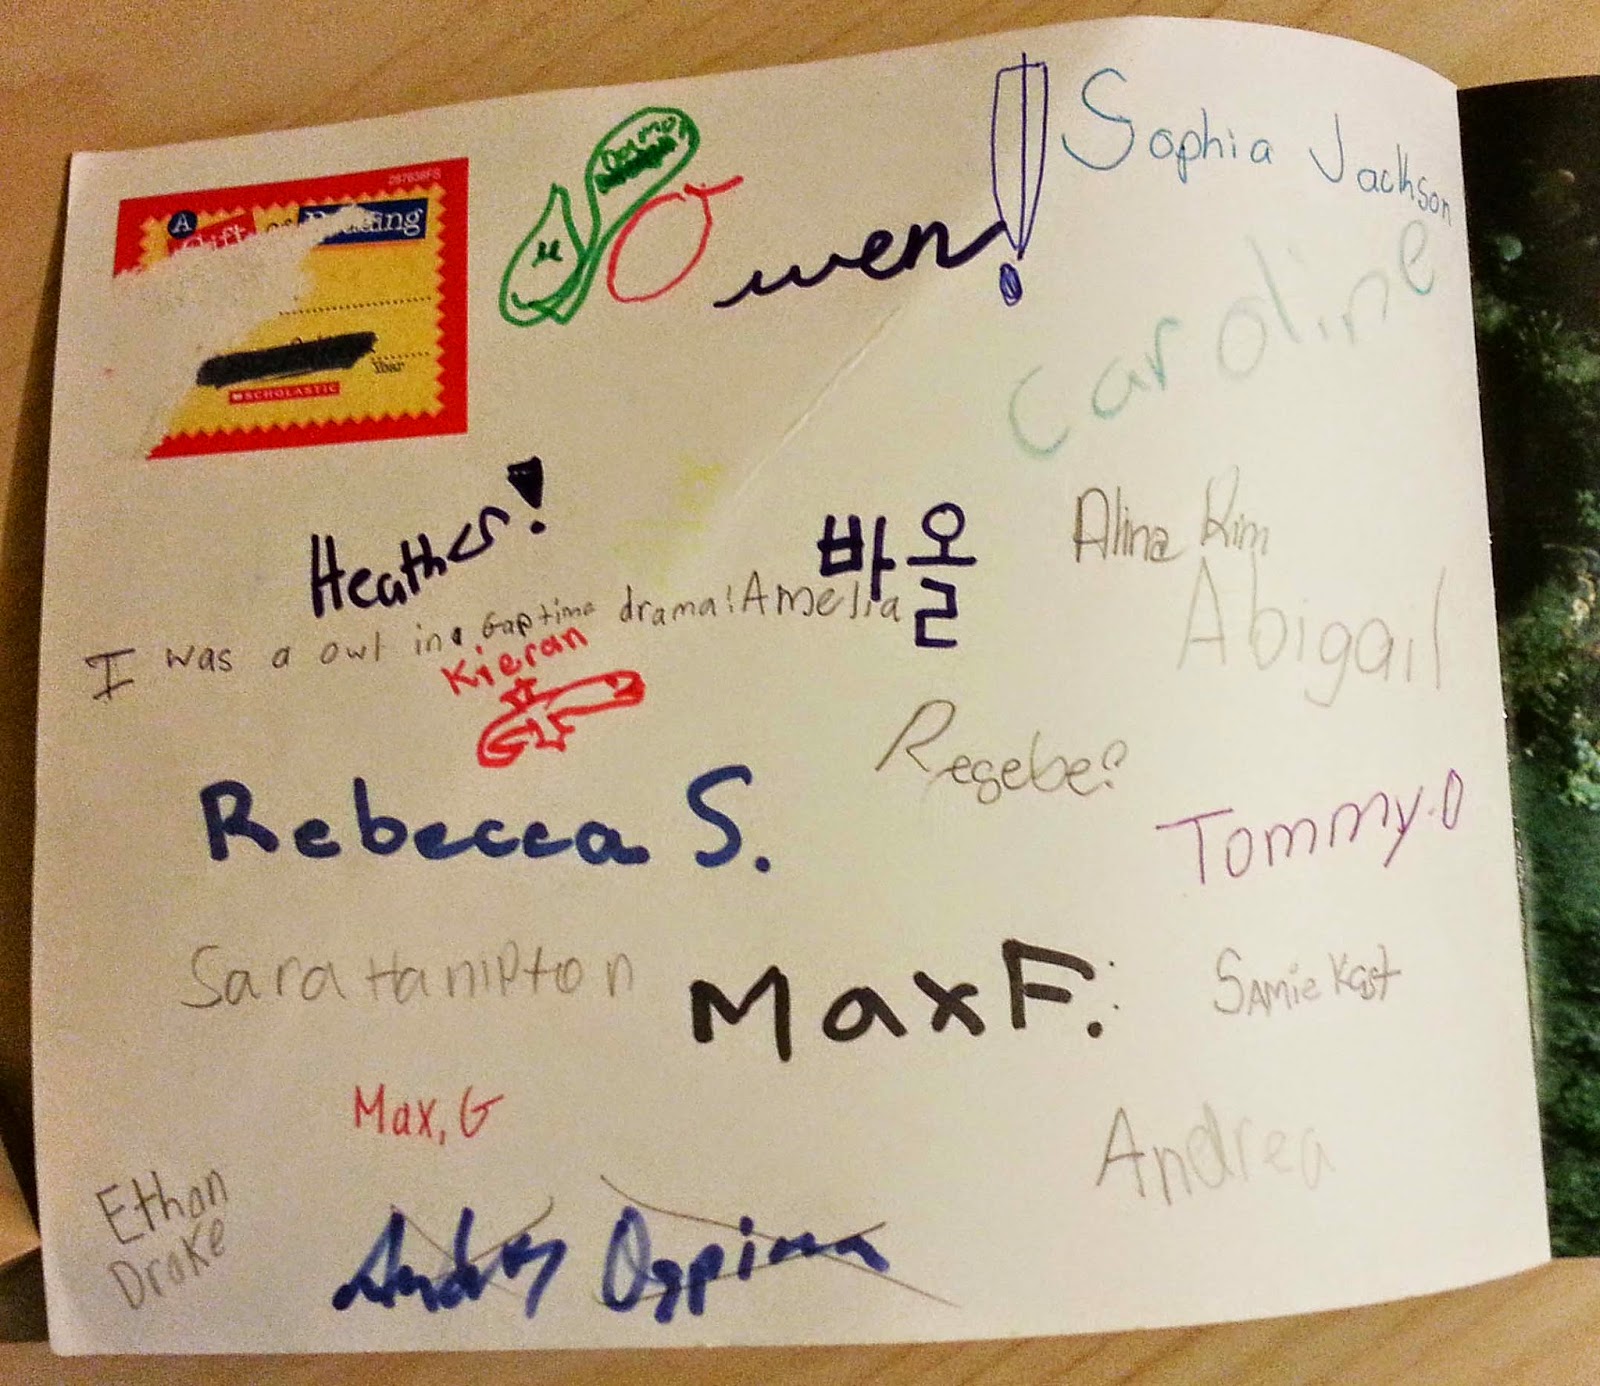 287638FS
A
Gift of Reading
SCHOLASTIC
Owen!
Sophia Jackson
Caroline
Heather!
바울
Alina Kim
I was a owl in a Gaptime drama! Amelia
Abigail
Kieran
Rebecca S.
Tommy.D
Sara Hampton
Max F.
Samie Kast
Max, G
Andrea
Ethan
Drake
Andres Ospina